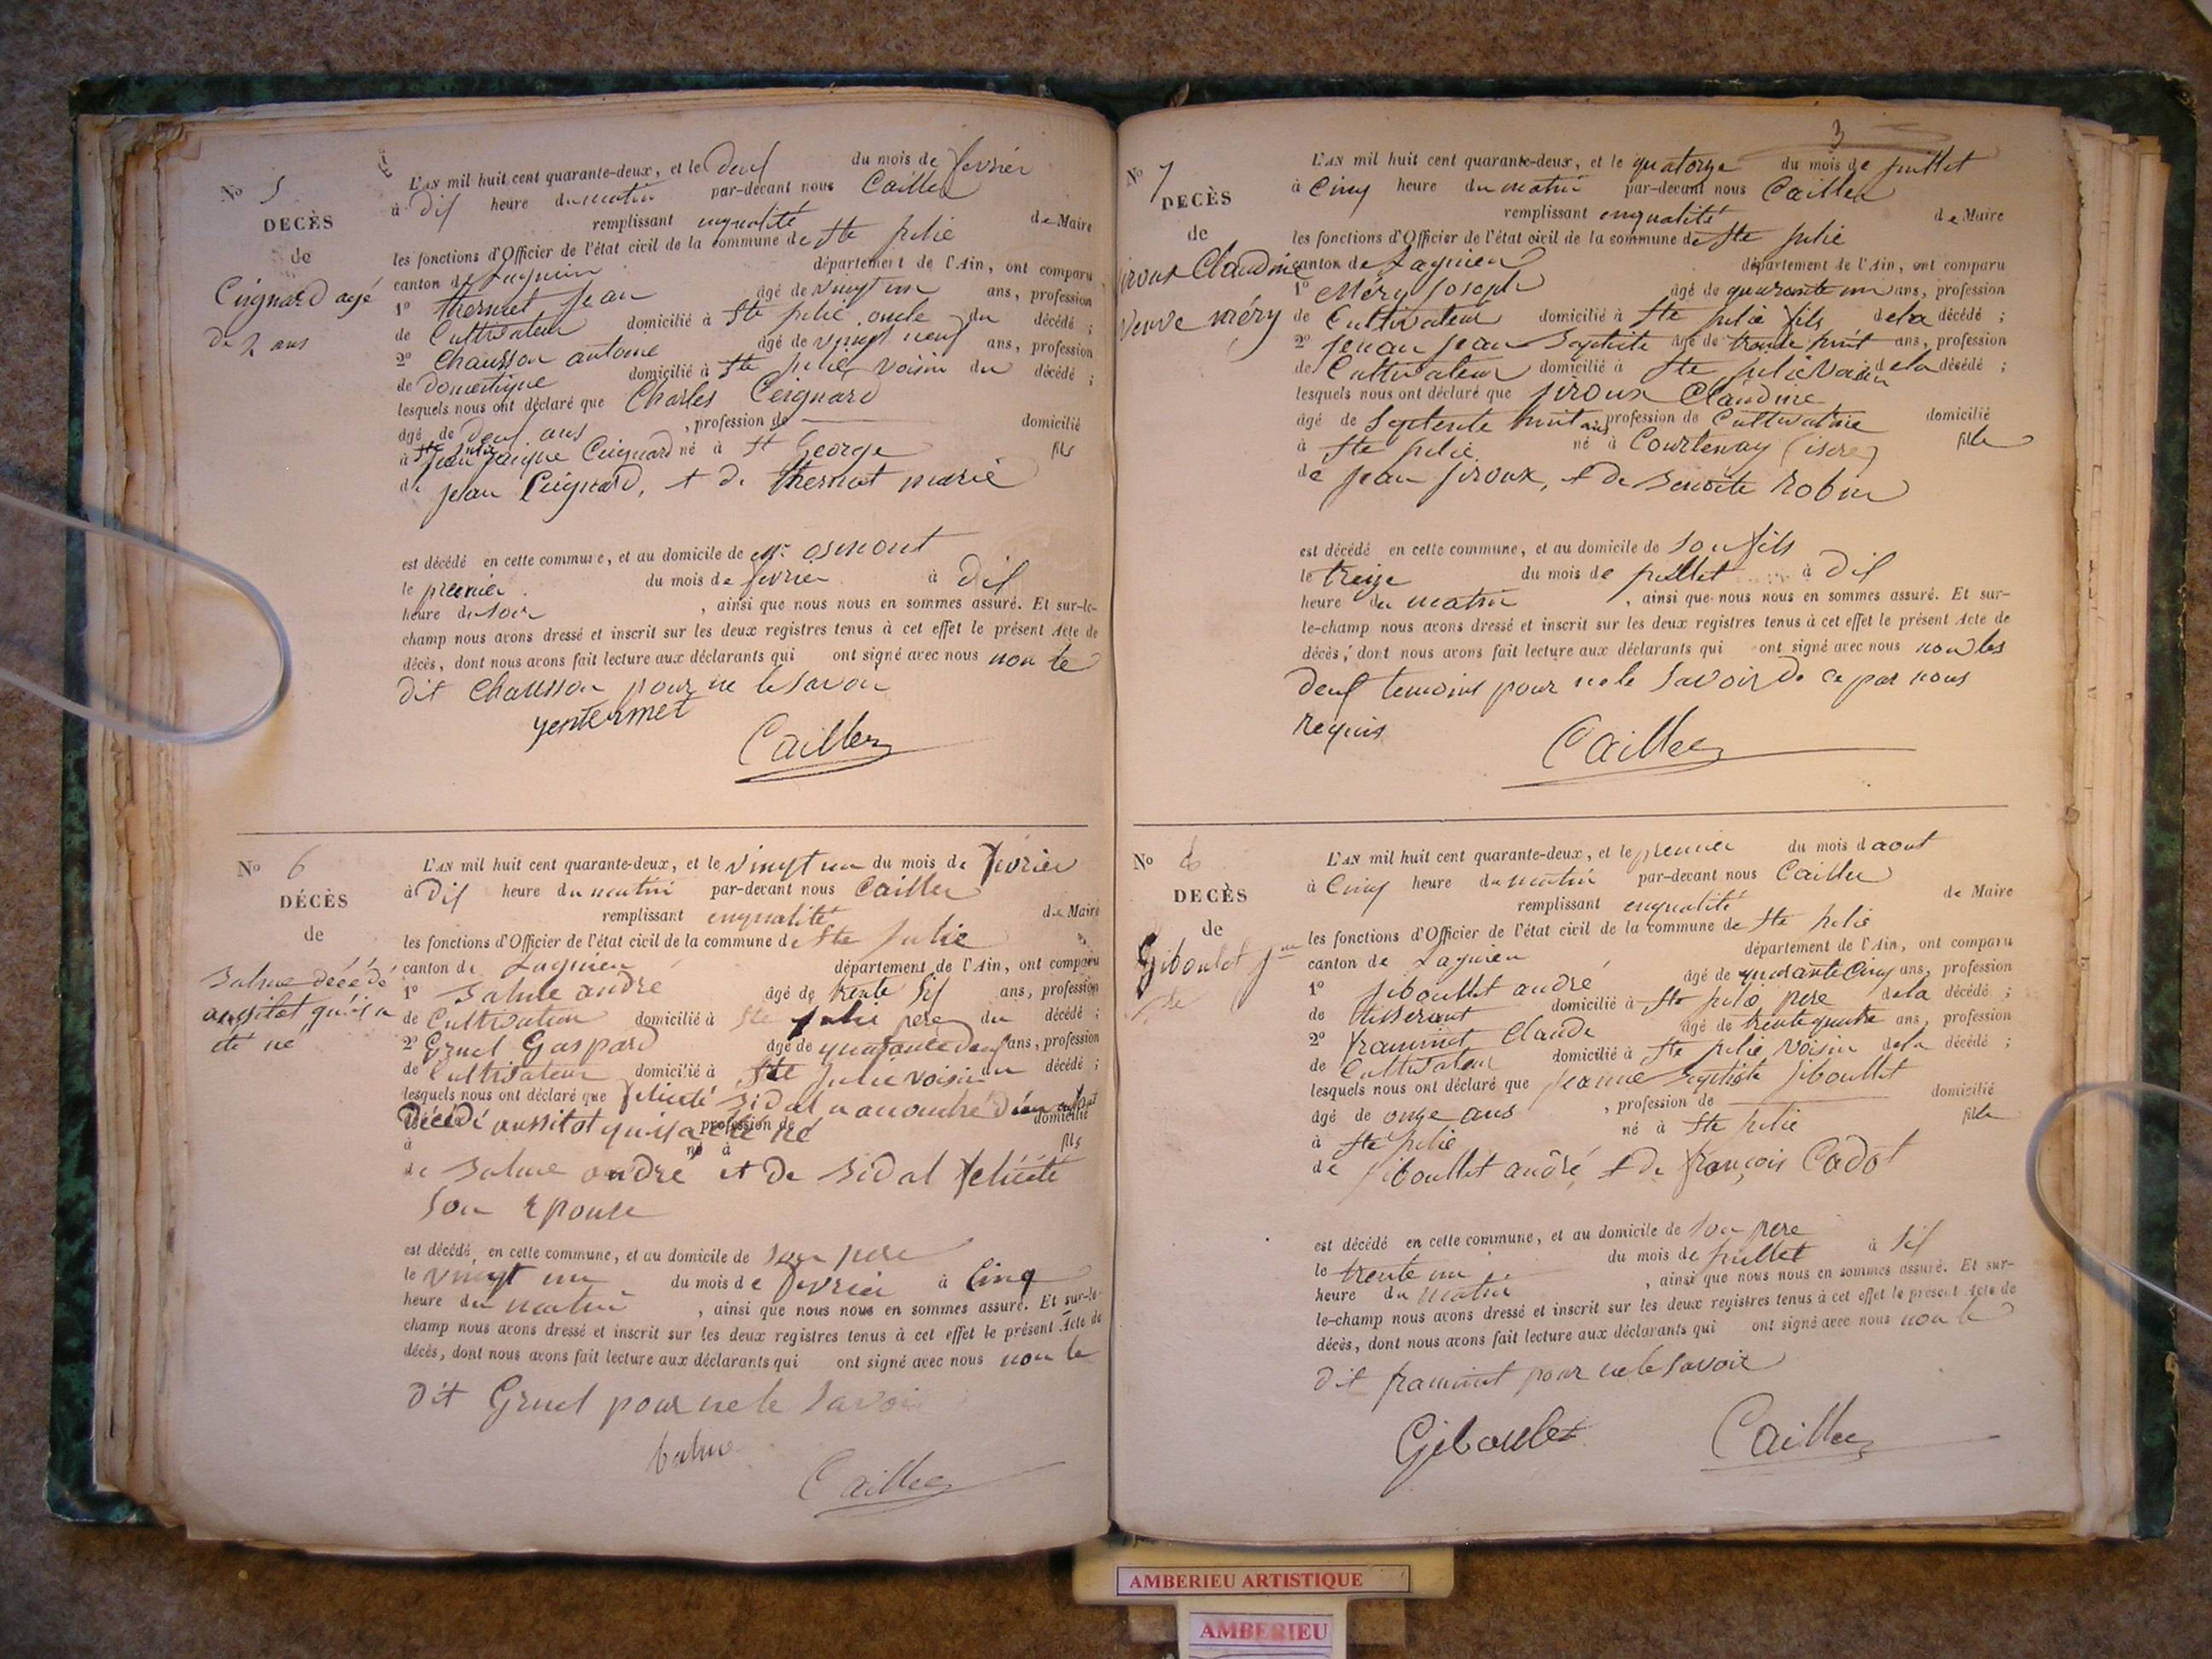 No 5
DECÈS
de
Cuignard agé
de 2 ans
L'AN mil huit cent quarante-deux, et le deux du mois de fevrier
à dix heure du matin par-devant nous Caillet
remplissant enqualité de Maire
les fonctions d'Officier de l'état civil de la commune de Ste julie
canton de Lagnieu département de l'Ain, ont comparu
1° thermet jean âgé de vingt un ans, profession
de Cultivateur domicilié à Ste julie oncle du décédé ;
2° Chausson antoine âgé de vingt neuf ans, profession
de domestique domicilié à Ste julie voisin du décédé ;
lesquels nous ont déclaré que Charles Cuignard
âgé de deux ans , profession de domicilié
à Ste julie né à St George fils
de jean Cuignard, et de thermet marie
est décédé en cette commune, et au domicile de mr osmont
le premier du mois de fevrier à dix
heure du soir , ainsi que nous nous en sommes assuré. Et sur-le-
champ nous avons dressé et inscrit sur les deux registres tenus à cet effet le présent Acte de
décès, dont nous avons fait lecture aux déclarants qui ont signé avec nous non le
dit Chausson pour ne le savoir
Caillet
No 6
DÉCÈS
de
décédé
aussitot qu'il a
été né
L'AN mil huit cent quarante-deux, et le vingt un du mois de fevrier
à dix heure du matin par-devant nous Caillet
remplissant enqualité de Maire
les fonctions d'Officier de l'état civil de la commune de Ste Julie
canton de Lagnieu département de l'Ain, ont comparu
1° andré âgé de trente six ans, profession
de Cultivateur domicilié à Ste julie pere du décédé ;
2° Gruel Gaspard âgé de quarante deux ans, profession
de Cultivateur domicilié à Ste julie voisin du décédé ;
lesquels nous ont déclaré que felicité Sidal a accouché d'un enfant
Décédé aussitot qu'il a été né profession de domicilié
à né à fils
de andré et de Sidal felicité
Son epouse
est décédé en cette commune, et au domicile de son pere
le vingt un du mois de fevrier à Cinq
heure du matin , ainsi que nous nous en sommes assuré. Et sur-le-
champ nous avons dressé et inscrit sur les deux registres tenus à cet effet le présent Acte de
décès, dont nous avons fait lecture aux déclarants qui ont signé avec nous non le
dit Gruel pour ne le savoir
Caillet
3
No 7
DECÈS
de
jiroux Claudine
veuve méry
L'AN mil huit cent quarante-deux, et le quatorze du mois de juillet
à Cinq heure du matin par-devant nous Caillet
remplissant enqualité de Maire
les fonctions d'Officier de l'état civil de la commune de Ste julie
canton de Lagnieu département de l'Ain, ont comparu
1° Méry Joseph âgé de quarante un ans, profession
de Cultivateur domicilié à Ste julie fils de la décédé ;
2° jean Baptiste âgé de trente huit ans, profession
de Cultivateur domicilié à Ste julie Voisin de la décédé ;
lesquels nous ont déclaré que jiroux Claudine
âgé de Septente huit ans profession de Cultivatrice domicilié
à Ste julie né à Courtenay (isere) fille
de jean jiroux, et de Benoite Robin
est décédé en cette commune, et au domicile de son fils
le treize du mois de juillet à dix
heure du matin , ainsi que nous nous en sommes assuré. Et sur-
le-champ nous avons dressé et inscrit sur les deux registres tenus à cet effet le présent Acte de
décès, dont nous avons fait lecture aux déclarants qui ont signé avec nous non les
deux temoins pour ne le savoir de ce par nous
requis
Caillet
No 8
DECÈS
de
Giboulet jne
L'AN mil huit cent quarante-deux, et le premier du mois d aout
à Cinq heure du matin par-devant nous Caillet
remplissant enqualité de Maire
les fonctions d'Officier de l'état civil de la commune de Ste julie
canton de Lagnieu département de l'Ain, ont comparu
1° jiboullet andré âgé de quarante Cinq ans, profession
de tisserant domicilié à Ste julie pere de la décédé ;
2° framinet Claude âgé de trente quatre ans, profession
de Cultivateur domicilié à Ste julie Voisin de la décédé ;
lesquels nous ont déclaré que jeanne Baptiste jiboullet
âgé de onze ans , profession de domicilié
à Ste julie né à Ste julie fille
de jiboullet andré, et de françois Cadot
est décédé en cette commune, et au domicile de son pere
le trente un du mois de juillet à six
heure du matin , ainsi que nous nous en sommes assuré. Et sur-
le-champ nous avons dressé et inscrit sur les deux registres tenus à cet effet le présent Acte de
décès, dont nous avons fait lecture aux déclarants qui ont signé avec nous non le
dit framinet pour ne le savoir
Giboulet Caillet
AMBERIEU ARTISTIQUE
AMBERIEU